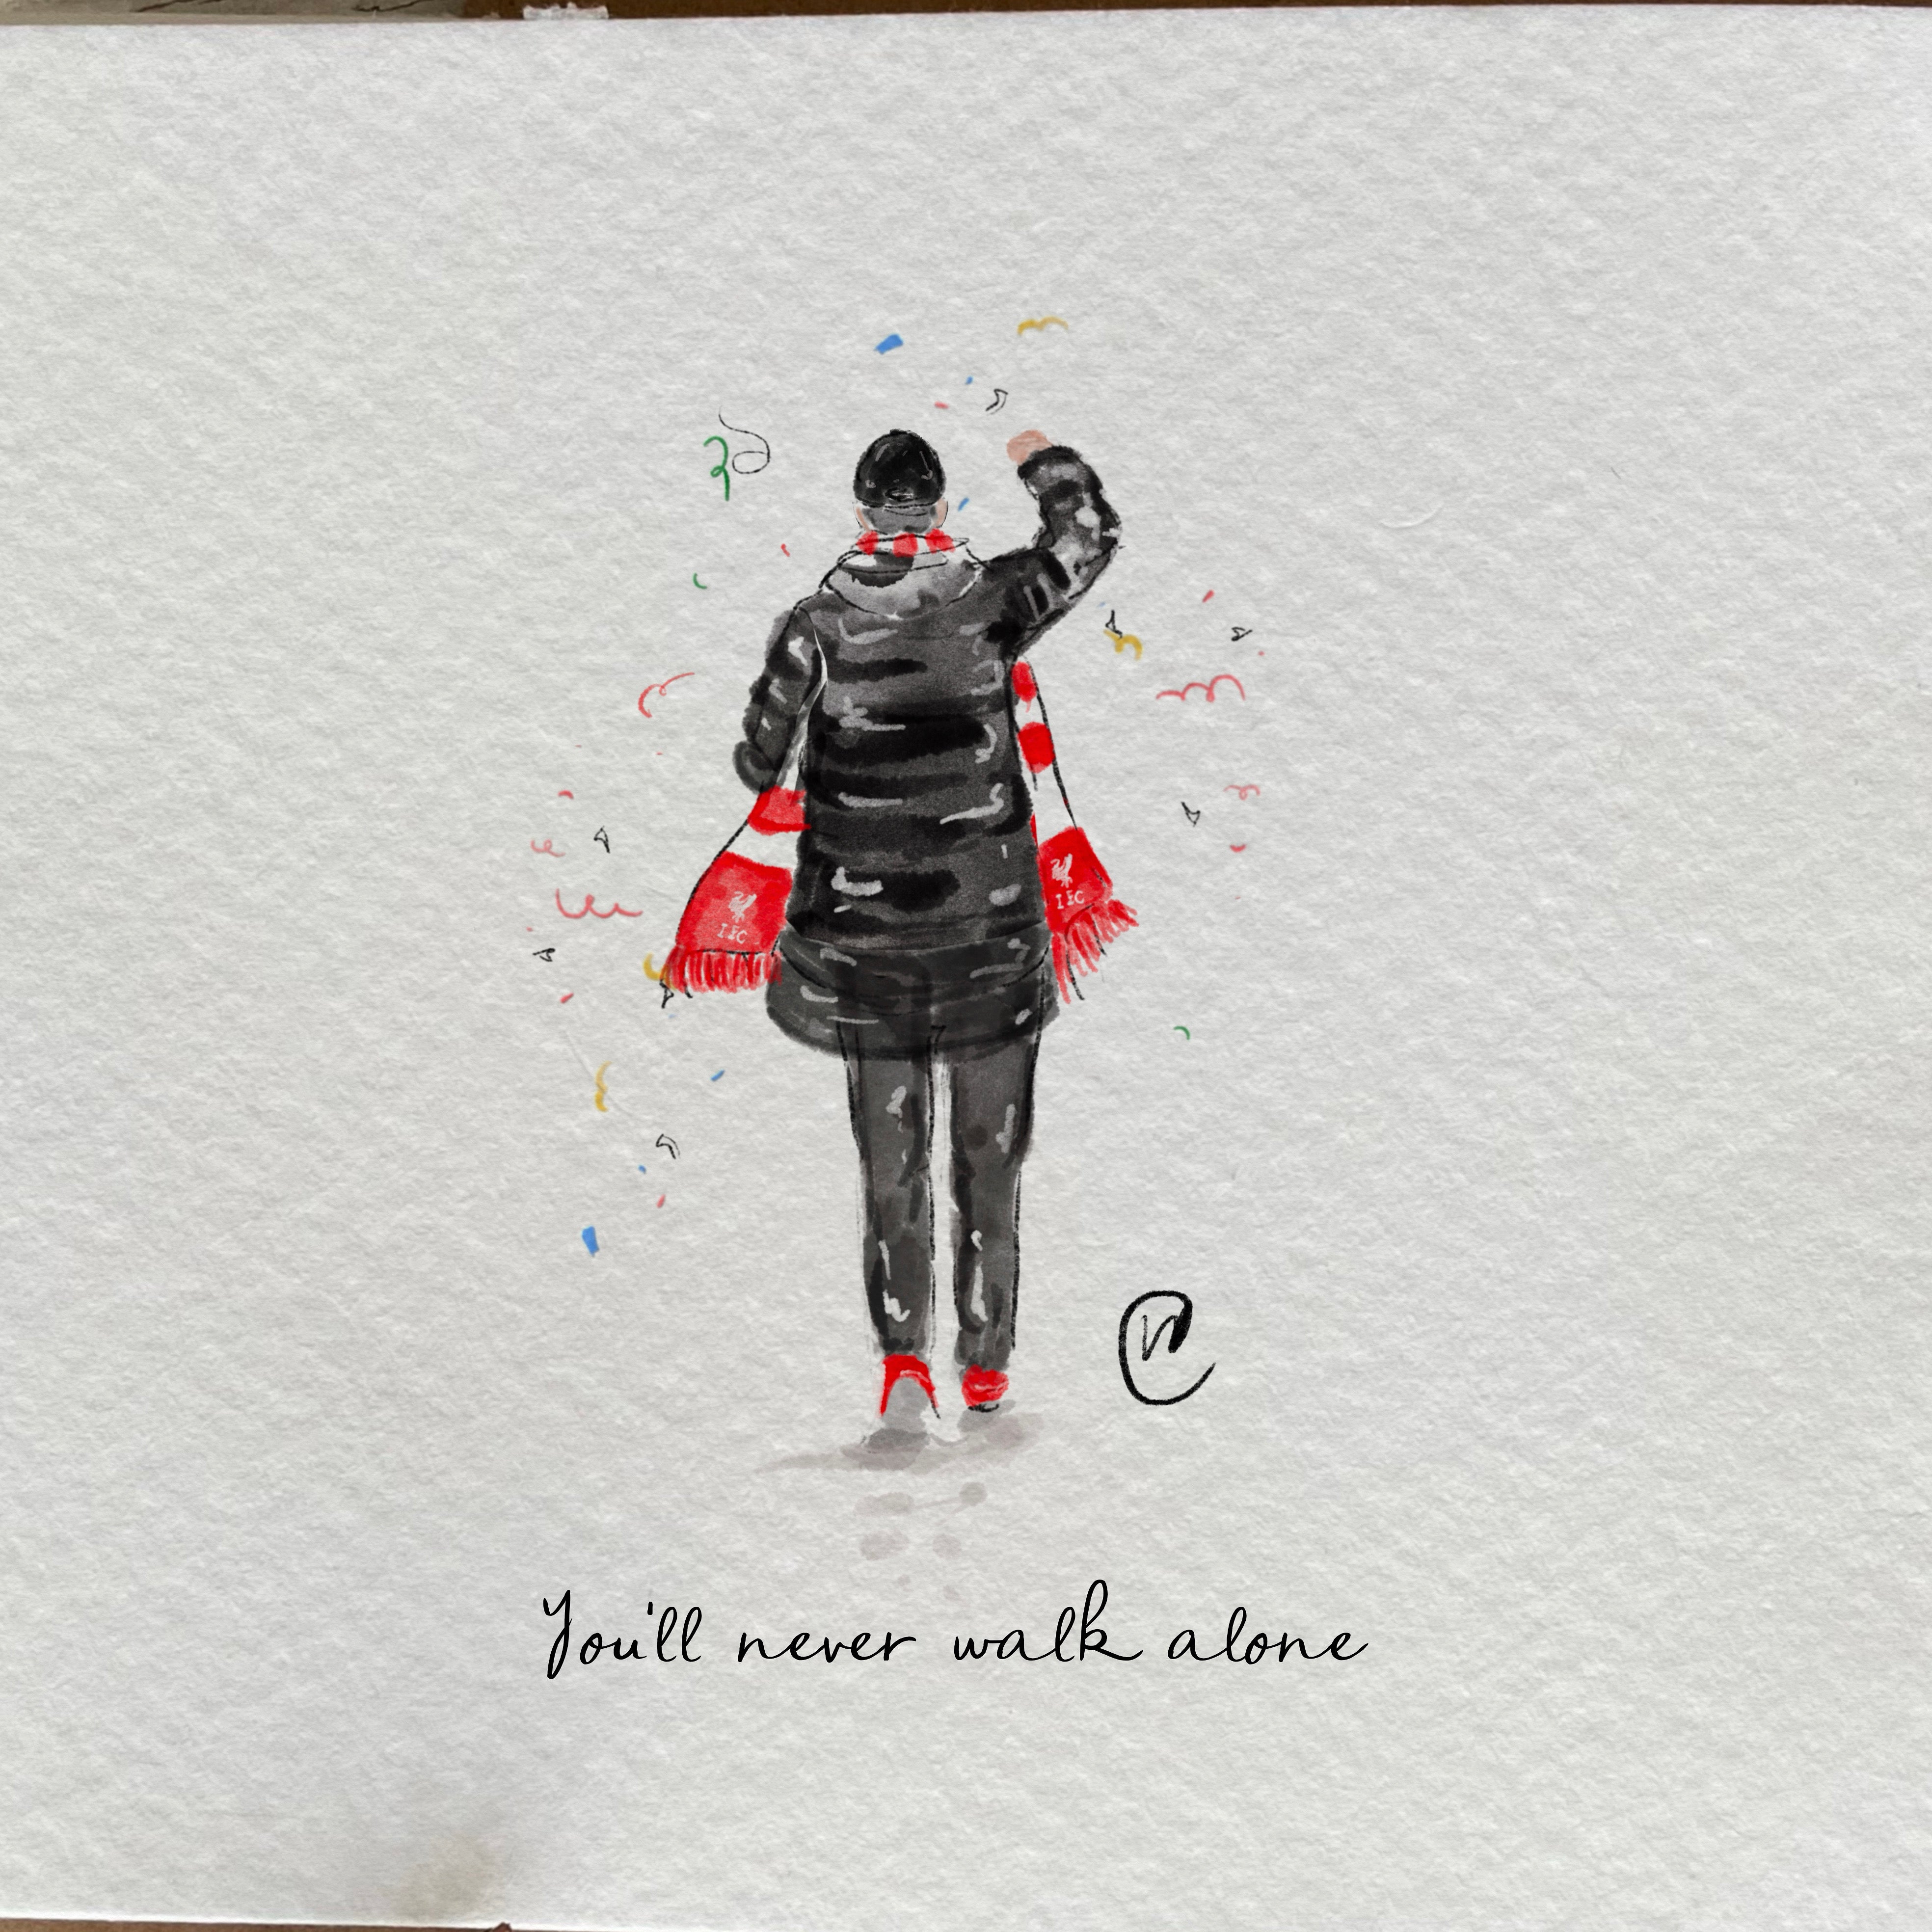 LFC
LFC
You'll never walk alone